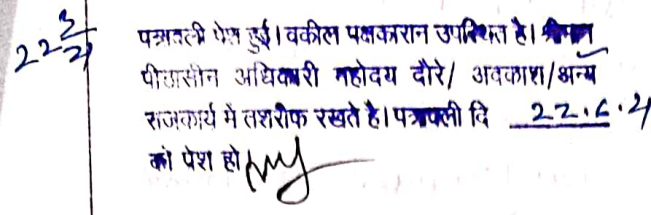 22 3/21
पत्रावली पेश हुई। वकील पक्षकारान उपस्थित है। श्रीमान
पीठासीन अधिकारी महोदय दौरे/ अवकाश/अन्य
राजकार्य में तशरीफ रखते है। पत्रावली दि 22.6.21
को पेश हो